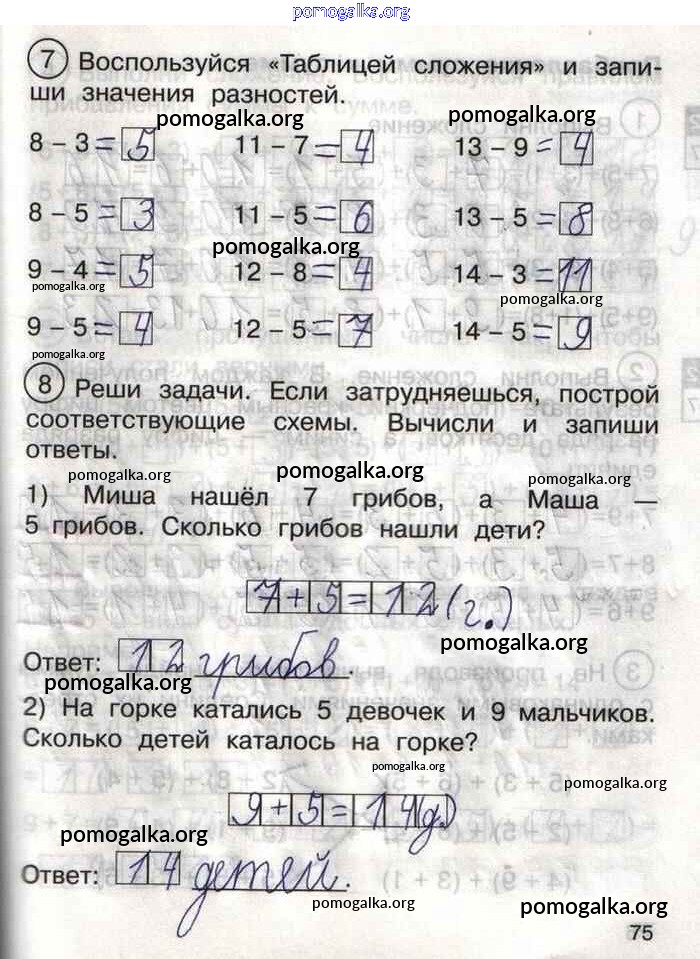 pomogalka.org
7 Воспользуйся «Таблицей сложения» и запи-
ши значения разностей.
pomogalka.org pomogalka.org
8 – 3 = 5 11 – 7 = 4 13 – 9 = 4
8 – 5 = 3 11 – 5 = 6 13 – 5 = 8
pomogalka.org
9 – 4 = 5 12 – 8 = 4 14 – 3 = 11
pomogalka.org pomogalka.org
9 – 5 = 4 12 – 5 = 7 14 – 5 = 9
pomogalka.org
8 Реши задачи. Если затрудняешься, построй
соответствующие схемы. Вычисли и запиши
ответы.
pomogalka.org pomogalka.org pomogalka.org
1) Миша нашёл 7 грибов, а Маша —
5 грибов. Сколько грибов нашли дети?
7+5=12(г.)
pomogalka.org
Ответ: 12 грибов.
pomogalka.org
2) На горке катались 5 девочек и 9 мальчиков.
Сколько детей каталось на горке?
pomogalka.org
pomogalka.org
9+5=14(д.)
pomogalka.org
Ответ: 14 детей.
pomogalka.org pomogalka.org
75